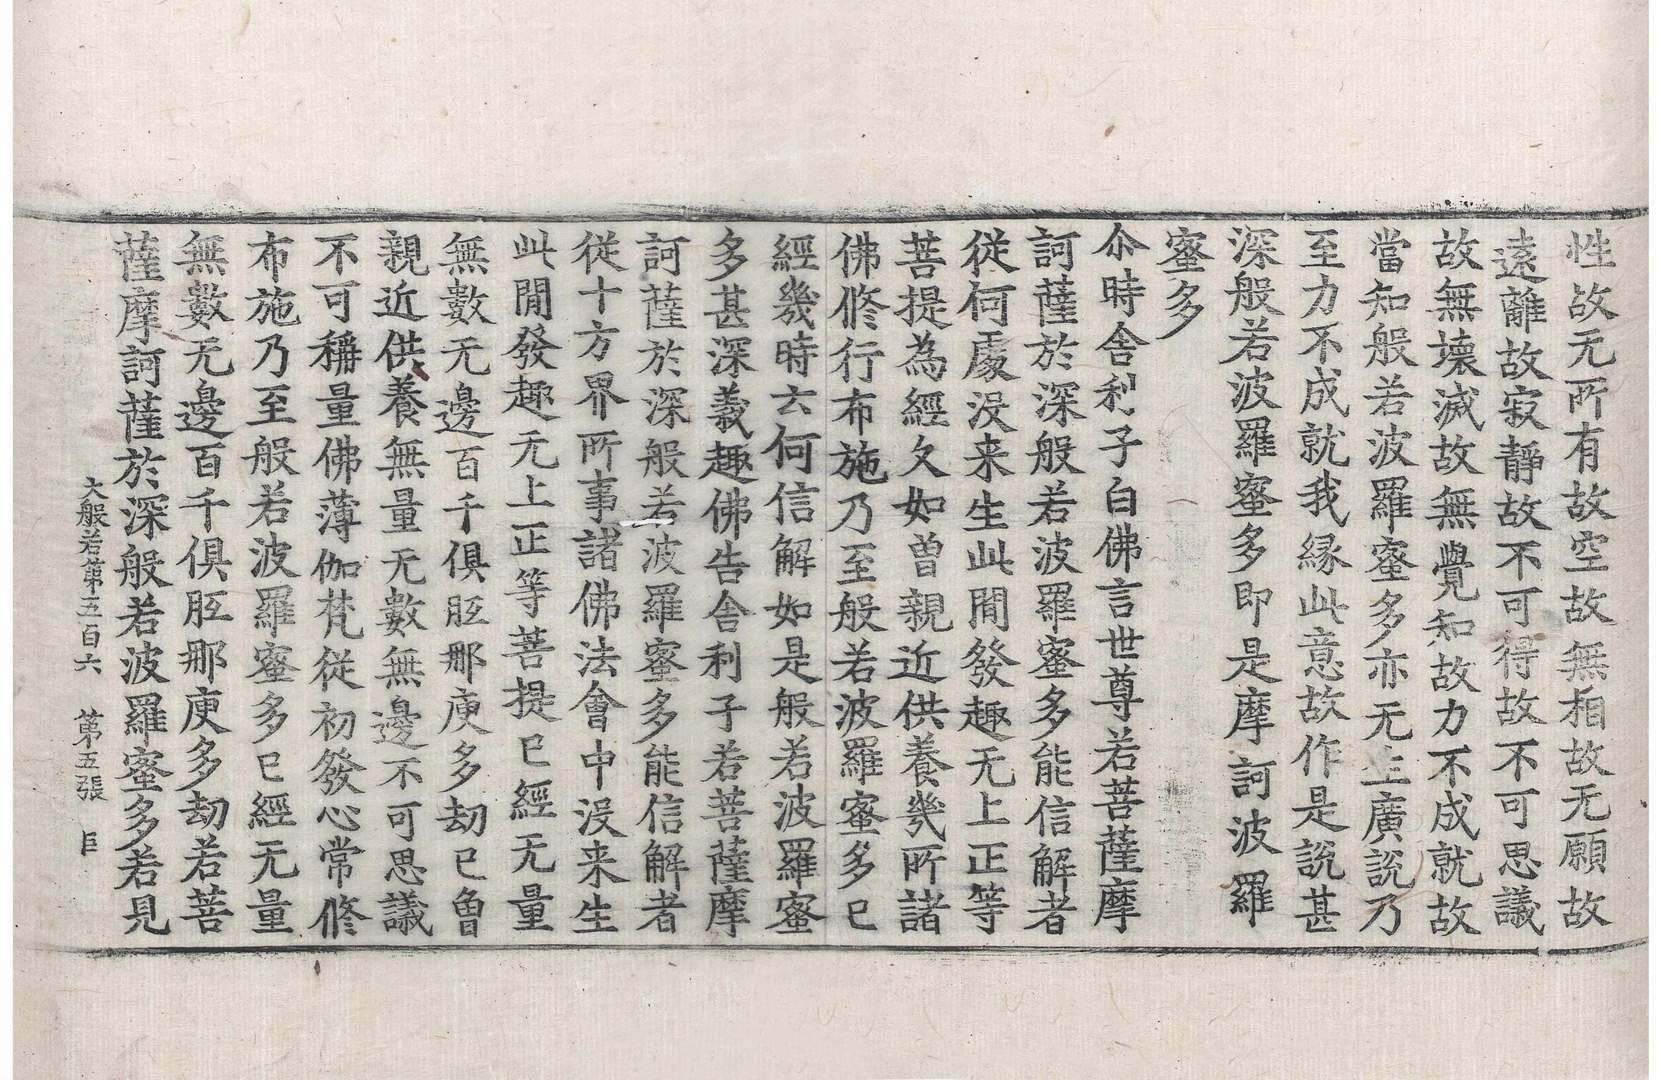 性故无所有故空故無相故无願故
遠離故寂靜故不可得故不可思議
故無壞滅故無覺知故力不成就故
當知般若波羅蜜多亦无生廣說乃
至力不成就我縁此意故作是說甚
深般若波羅蜜多即是摩訶波羅
蜜多
尒時舍利子白佛言世尊若菩薩摩
訶薩於深般若波羅蜜多能信解者
従何處没来生此閒發趣无上正等
菩提為經久如曽親近供養幾所諸
佛修行布施乃至般若波羅蜜多已
經幾時云何信解如是般若波羅蜜
多甚深義趣佛告舍利子若菩薩摩
訶薩於深般若波羅蜜多能信解者
従十方界所事諸佛法會中没来生
此閒發趣无上正等菩提已經无量
無數无邊百千俱胝那庾多劫已曽
親近供養無量无數無邊不可思議
不可稱量佛薄伽梵從初發心常修
布施乃至般若波羅蜜多已經无量
無數无邊百千俱胝那庾多劫若菩
薩摩訶薩於深般若波羅蜜多若見
大般若第五百六 第五張